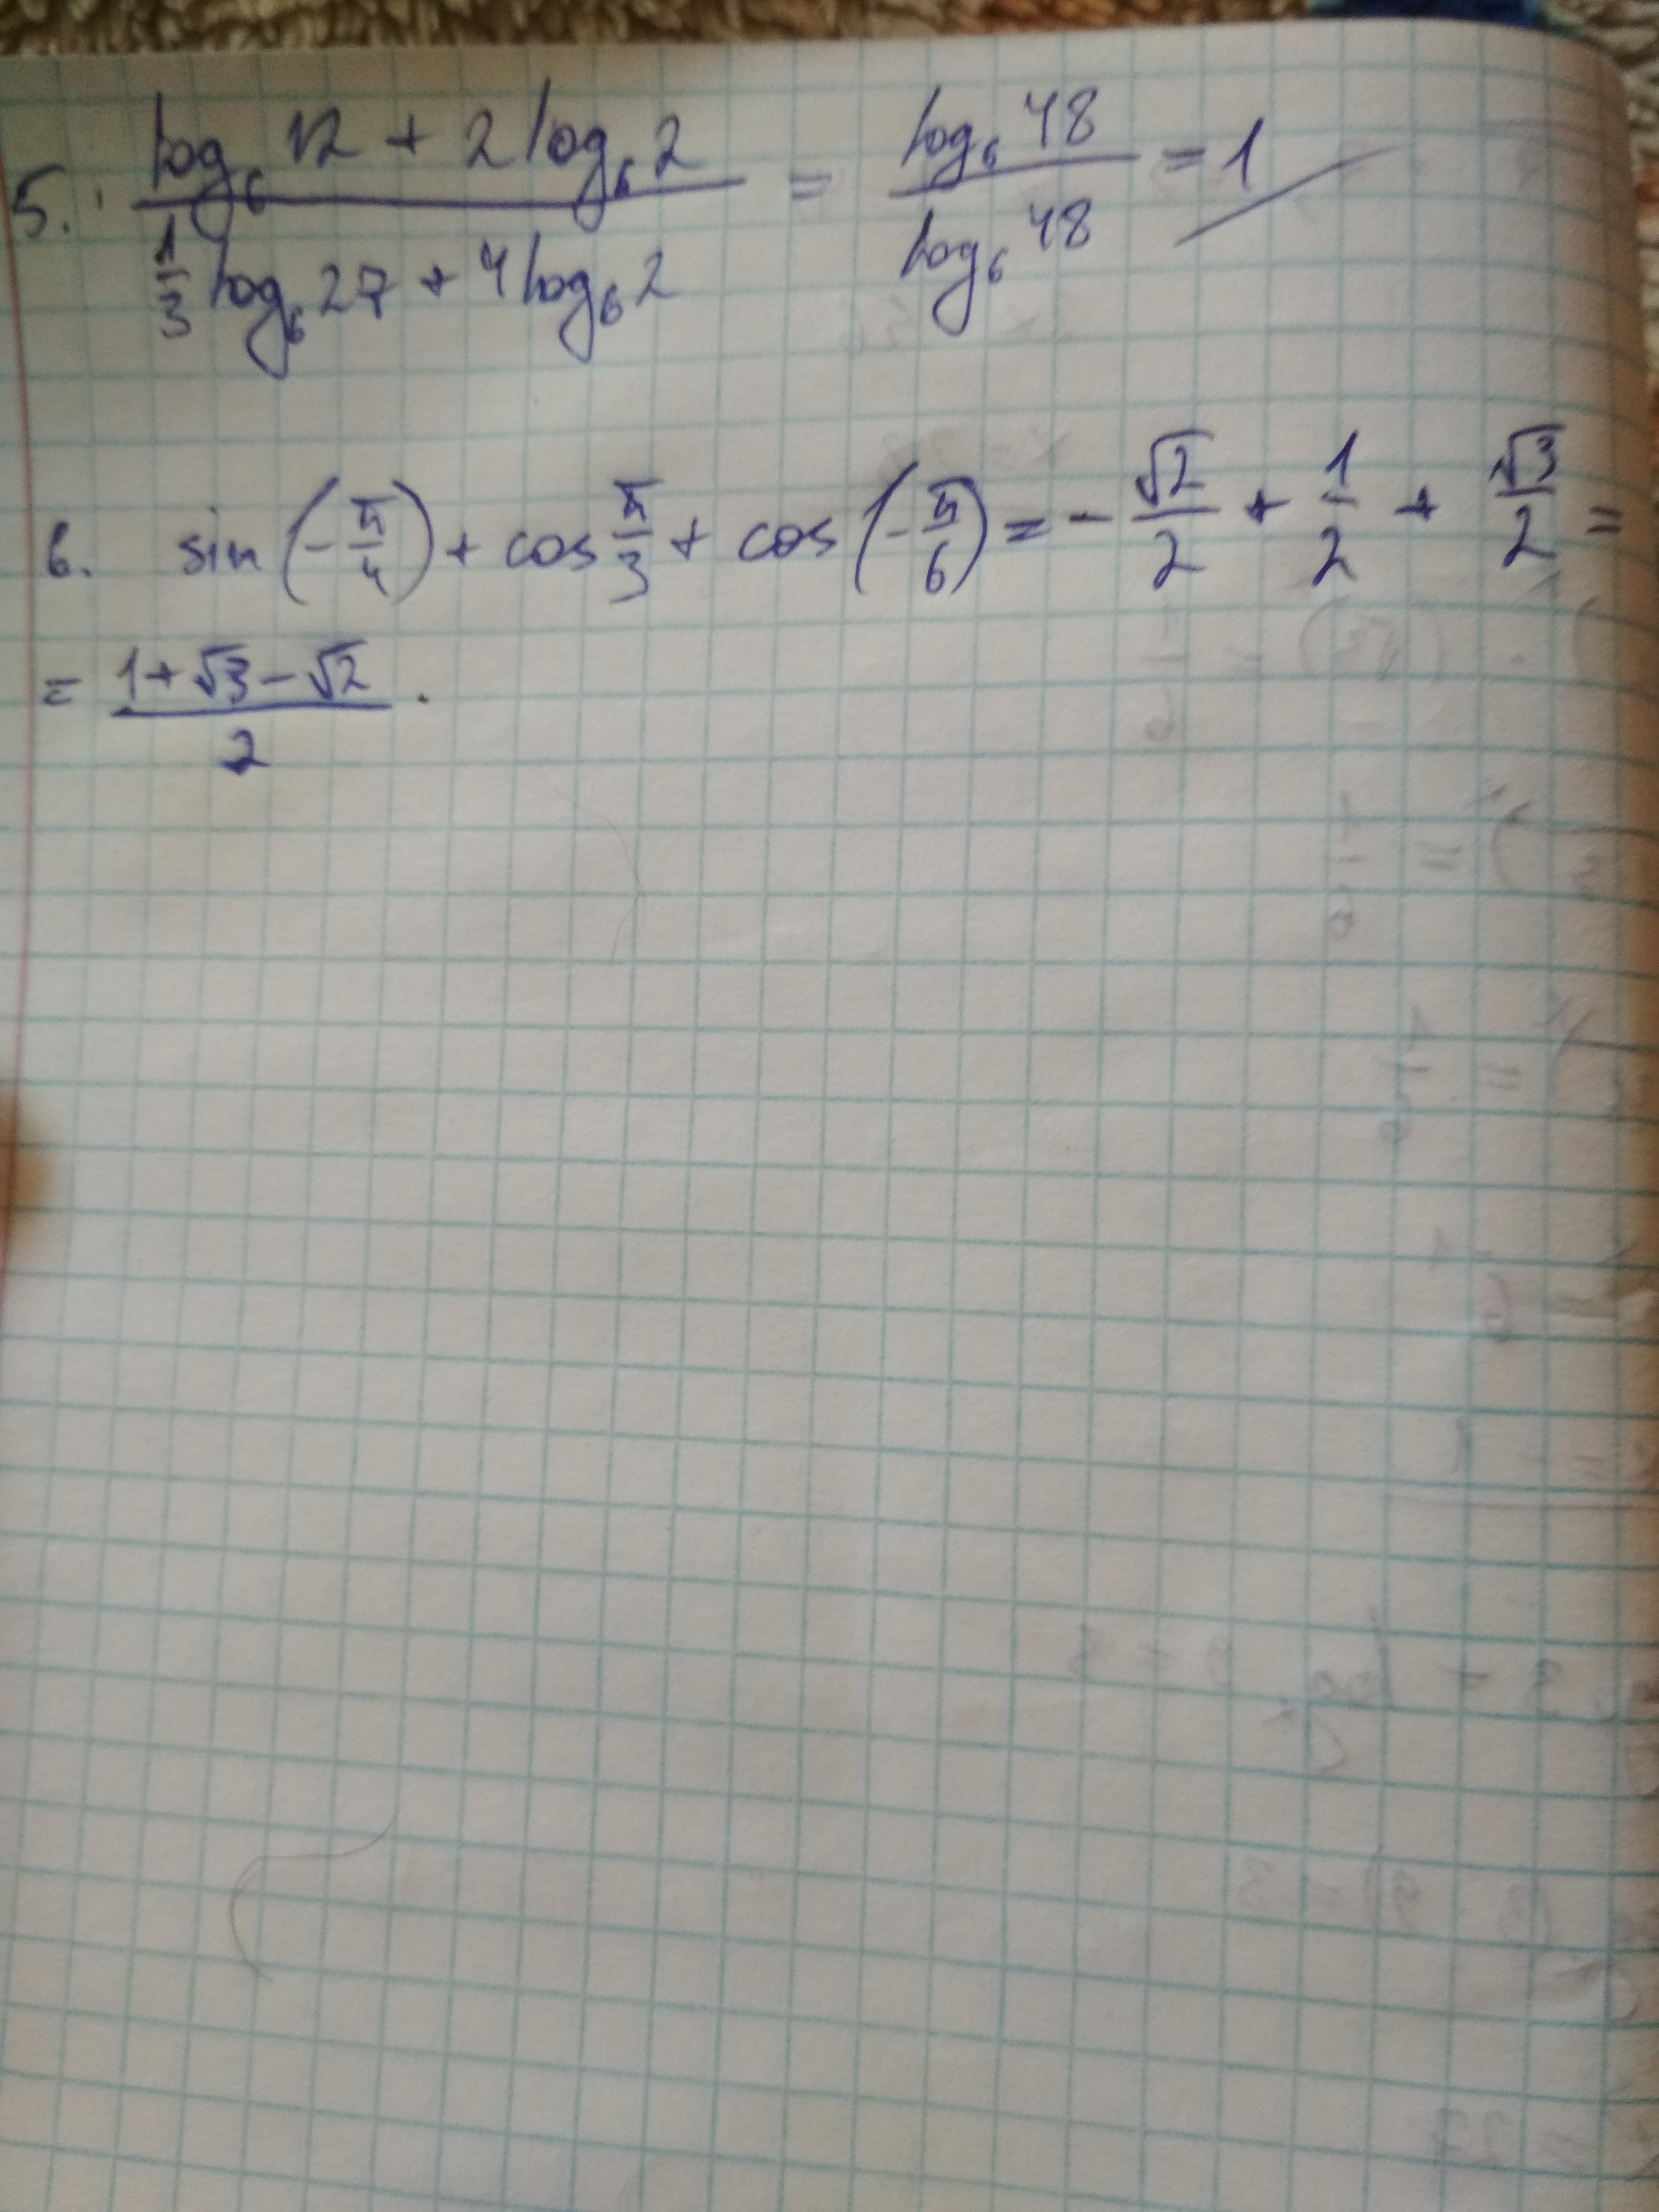 5. (log₆ 12 + 2 log₆ 2) / (1/3 log₆ 27 + 4 log₆ 2) = log₆ 48 / log₆ 48 = 1
6. sin(-π/4) + cos π/3 + cos(-π/6) = -√2/2 + 1/2 + √3/2 =
= (1+√3-√2)/2 .